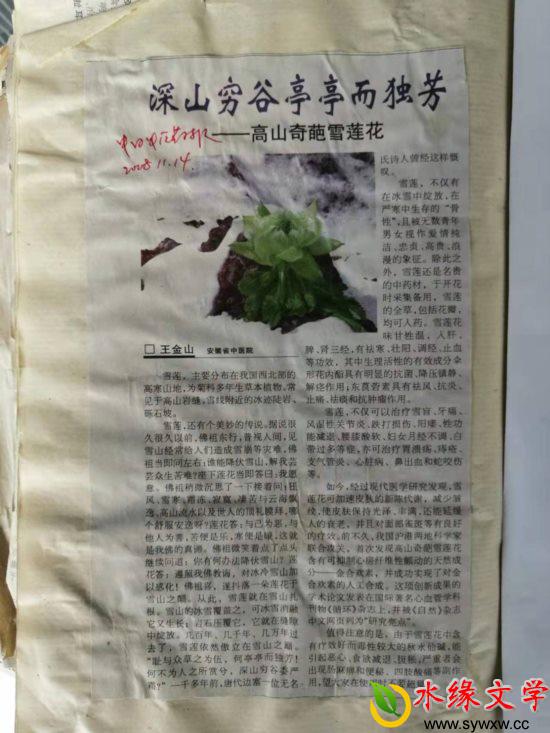 深山穷谷亭亭而独芳
——高山奇葩雪莲花
2005.11.14.
□ 王金山 安徽省中医院
雪莲，主要分布在我国西北部的
高寒山地，为菊科多年生草本植物。常
见于高山岩缝，雪线附近的冰迹陡岩、
砾石坡。
雪莲，还有个美妙的传说。据说很
久很久以前，佛祖东行，普视人间，见
雪山经常给人们造成雪崩等灾难，佛
祖当即问左右：谁能降伏雪山，解我芸
芸众生苦难？座下莲花当即答曰：我愿
意。佛祖稍微沉思了一下接着问：狂
风、雪寒、霜冻、寂寞、凄苦与云海飘
逸、高山流水以及世人的顶礼膜拜，哪
个舒服安逸呀？莲花答：与己为恶，与
他人为善，苦便是乐，寒便是暖，这就
是我佛的真谛。佛祖微笑着点了点头
继续问道：你有何办法降伏雪山？莲
花答：遵照我佛教诲，对冰冷雪山加
以感化！佛祖喜，遂抖落一朵莲花于
雪山之巅。从此，雪莲就在雪山扎
根。雪山的冰雪覆盖之，可冰雪消融
它又生长；岩石压覆它，它就在缝隙
中绽放。几百年、几千年、几万年过
去了，雪莲依然傲立在雪山之巅。
“耻与众草之为伍，何亭亭而独芳！
何不为人之所赏分，深山穷谷委严
霜？”一千多年前，唐代边塞一位无名
氏诗人曾经这样慨
叹。
雪莲，不仅有
在冰雪中绽放，在
严寒中生存的“骨
性”，且被无数青年
男女视作爱情纯
洁、忠贞、高贵、浪
漫的象征。除此之
外，雪莲还是名贵
的中药材，于开花
时采集备用，雪莲
的全草，包括花瓣，
均可入药。雪莲花
味甘性温，入肝、
脾、肾三经，有祛寒、壮阳、调经、止血
等功效，其中生理活性的有效成分伞
形花内酯具有明显的抗菌、降压镇静、
解痉作用；东莨菪素具有祛风、抗炎、
止痛、祛痰和抗肿瘤作用。
雪莲，不仅可以治疗雪盲、牙痛、
风湿性关节炎、跌打损伤、阳痿、性功
能减退、腰膝酸软、妇女月经不调、白
带过多等症，亦可治疗胃溃疡、痔疮、
支气管炎、心脏病、鼻出血和蛇咬伤
等。
如今，经过现代医学研究发现，雪
莲花可加速皮肤的新陈代谢，减少皱
纹，使皮肤保持光泽、丰满，还能延缓
人的衰老，并且对面部雀斑等有良好
的疗效。前不久，我国沪港两地科学家
联合攻关，首次发现高山奇葩雪莲花
含有可抑制心房纤维性颤动的天然成
分——金合欢素，并成功实现了对金
合欢素的人工合成。这项创新成果的
学术论文发表在国际著名心血管学科
刊物《循环》杂志上，并被《自然》杂志
中文网页列为“研究亮点”。
值得注意的是，由于雪莲花中含
有疗效好而毒性较大的秋水仙碱，能
引起恶心、食欲减退、腹胀，严重者会
出现肠麻痹和便秘、四肢酸痛等副作
用，望大家在使用时不要超量。
水缘文学
www.sywxw.cc